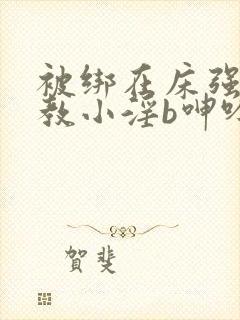 被绑在床强
教小淫b呻吟
賀斐